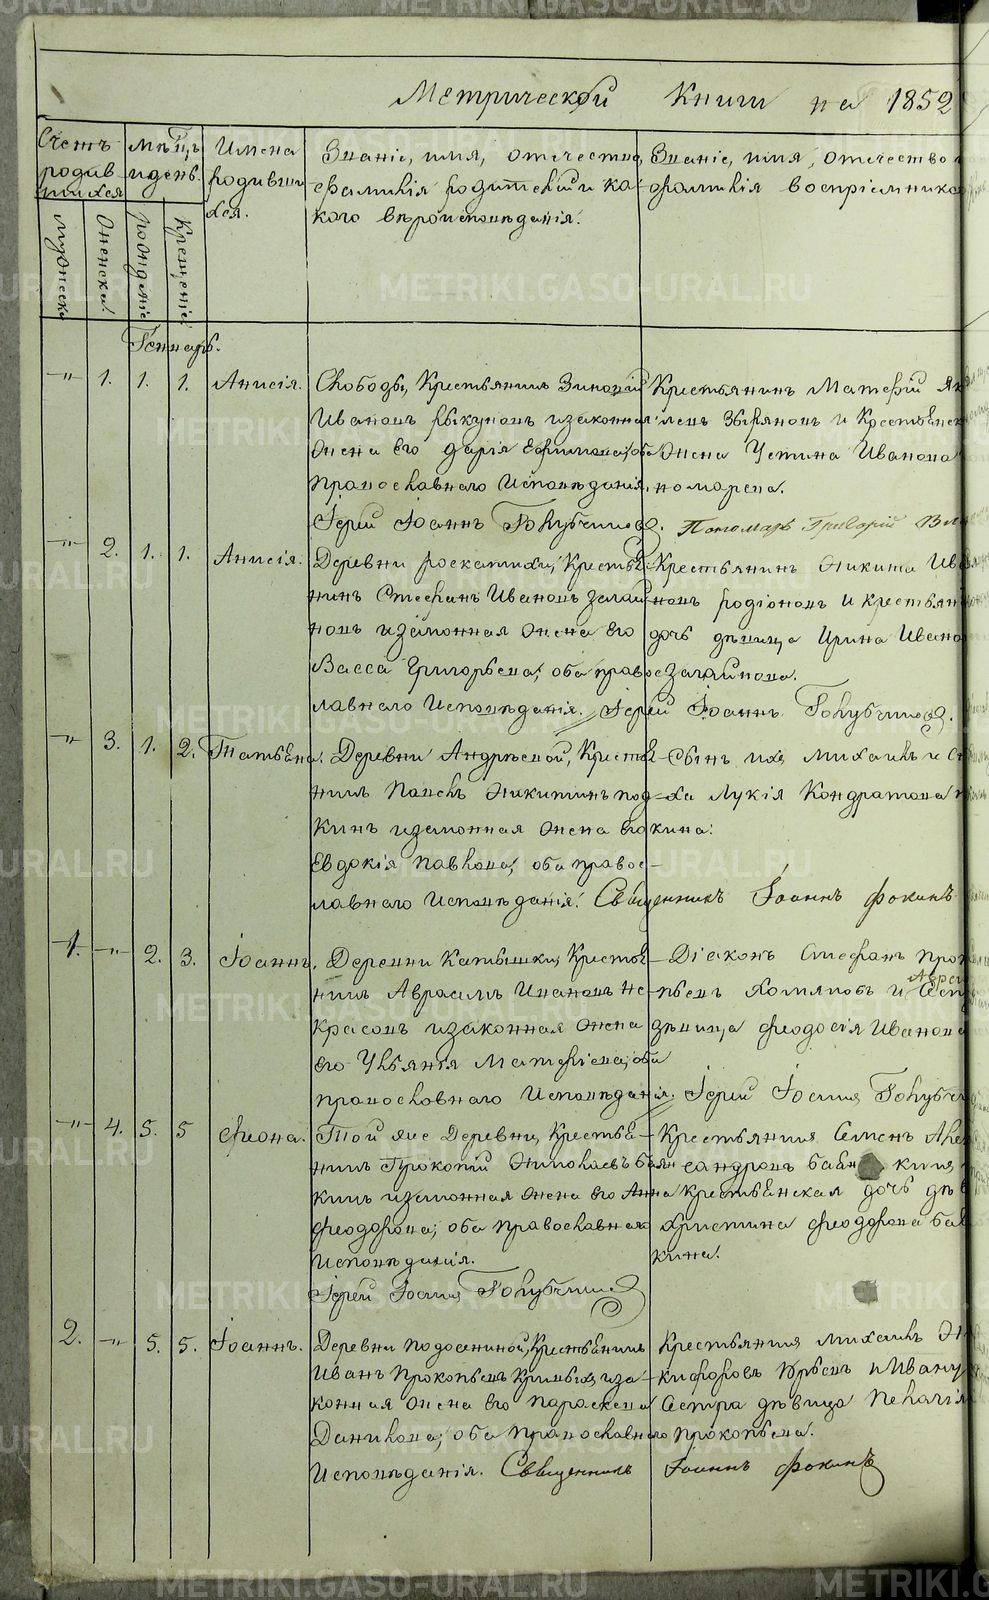 Метрической Книги на 1852
Счетъ родив шихся
мѣсяцъ и день.
Имена родивши хся.
Званіе, имя, отчество, фамилія родителей и ка- кого вѣроисповѣданія.
Званіе, имя, отчество и фамилія воспріемнико
мужеска
женска.
рожденіе
Крещеніе
Генварь.
"
1.
1.
1.
Анисія.
Слободы, Крестьянинъ Зиновій
Ивановъ и законная
жена его Дарія Ефимова; оба
Православнаго Исповѣданія.
Крестьянинъ Матѳей Як
левъ Зыряновъ и Крестьянск
жена Устина Иванова
номарева.
Іерей Іоаннъ Голубчиковъ. Пономарь Григорій
"
2.
1.
1.
Анисія.
Деревни Роскатихи, Крестья-
нинъ Стефанъ Ивановъ Загай
новъ и законная жена его
Васса Григорьева; оба правос
лавнаго Исповѣданія.
Крестьянинъ Никита Ив
новъ Родіоновъ и крестьян
дочь дѣвица Ирина Ивано
Загайнова.
Іерей Іоаннъ Голубчиковъ.
"
3.
1.
2.
Татьяна.
Деревни Андрѣевой, Крестья-
нинъ Павелъ Никитинъ
кинъ и законная жена его
Евдокія Павлова; оба правос-
лавнаго Исповѣданія.
Сынъ ихъ Михаилъ и
ха Лукія Кондратова
кина.
Священникъ Іоаннъ Фокинъ
1.
"
2.
3.
Іоаннъ.
Деревни Катышки, Крестья-
нинъ Авраамъ Ивановъ Не-
красовъ и законная жена
его Ульянія Матѳіева; оба
православнаго Исповѣданія.
Діаконъ Стефанъ Прок
пьевъ Хомяковъ и Сест
дѣвица Феодосія Иванова
Іерей Іоаннъ Голубч
"
4.
5.
5
Феона.
Той же Деревни, Крестья-
нинъ Прокопій Николаевъ Бабин
кинъ и законная жена его Анна
Феодорова; оба православнаго
Исповѣданія.
Крестьянинъ Семенъ Але
сандровъ
Крестьянская дочь дѣв
Христина Феодорова Баб
кина.
Іерей Іоаннъ Голубчиковъ
2.
"
5.
5.
Іоаннъ.
Деревни Подосениной, Крестьянинъ
Иванъ Прокопьевъ и зако-
нная жена его Параскева
Данилова; оба православнаго
Исповѣданія.
Крестьянинъ Михаилъ Ни
кифоровъ Юрьевъ и Ивану
Сестра дѣвица Пелагія
Прокопьева.
Священникъ Іоаннъ Фокинъ
METRIKI.GASO-URAL.RU